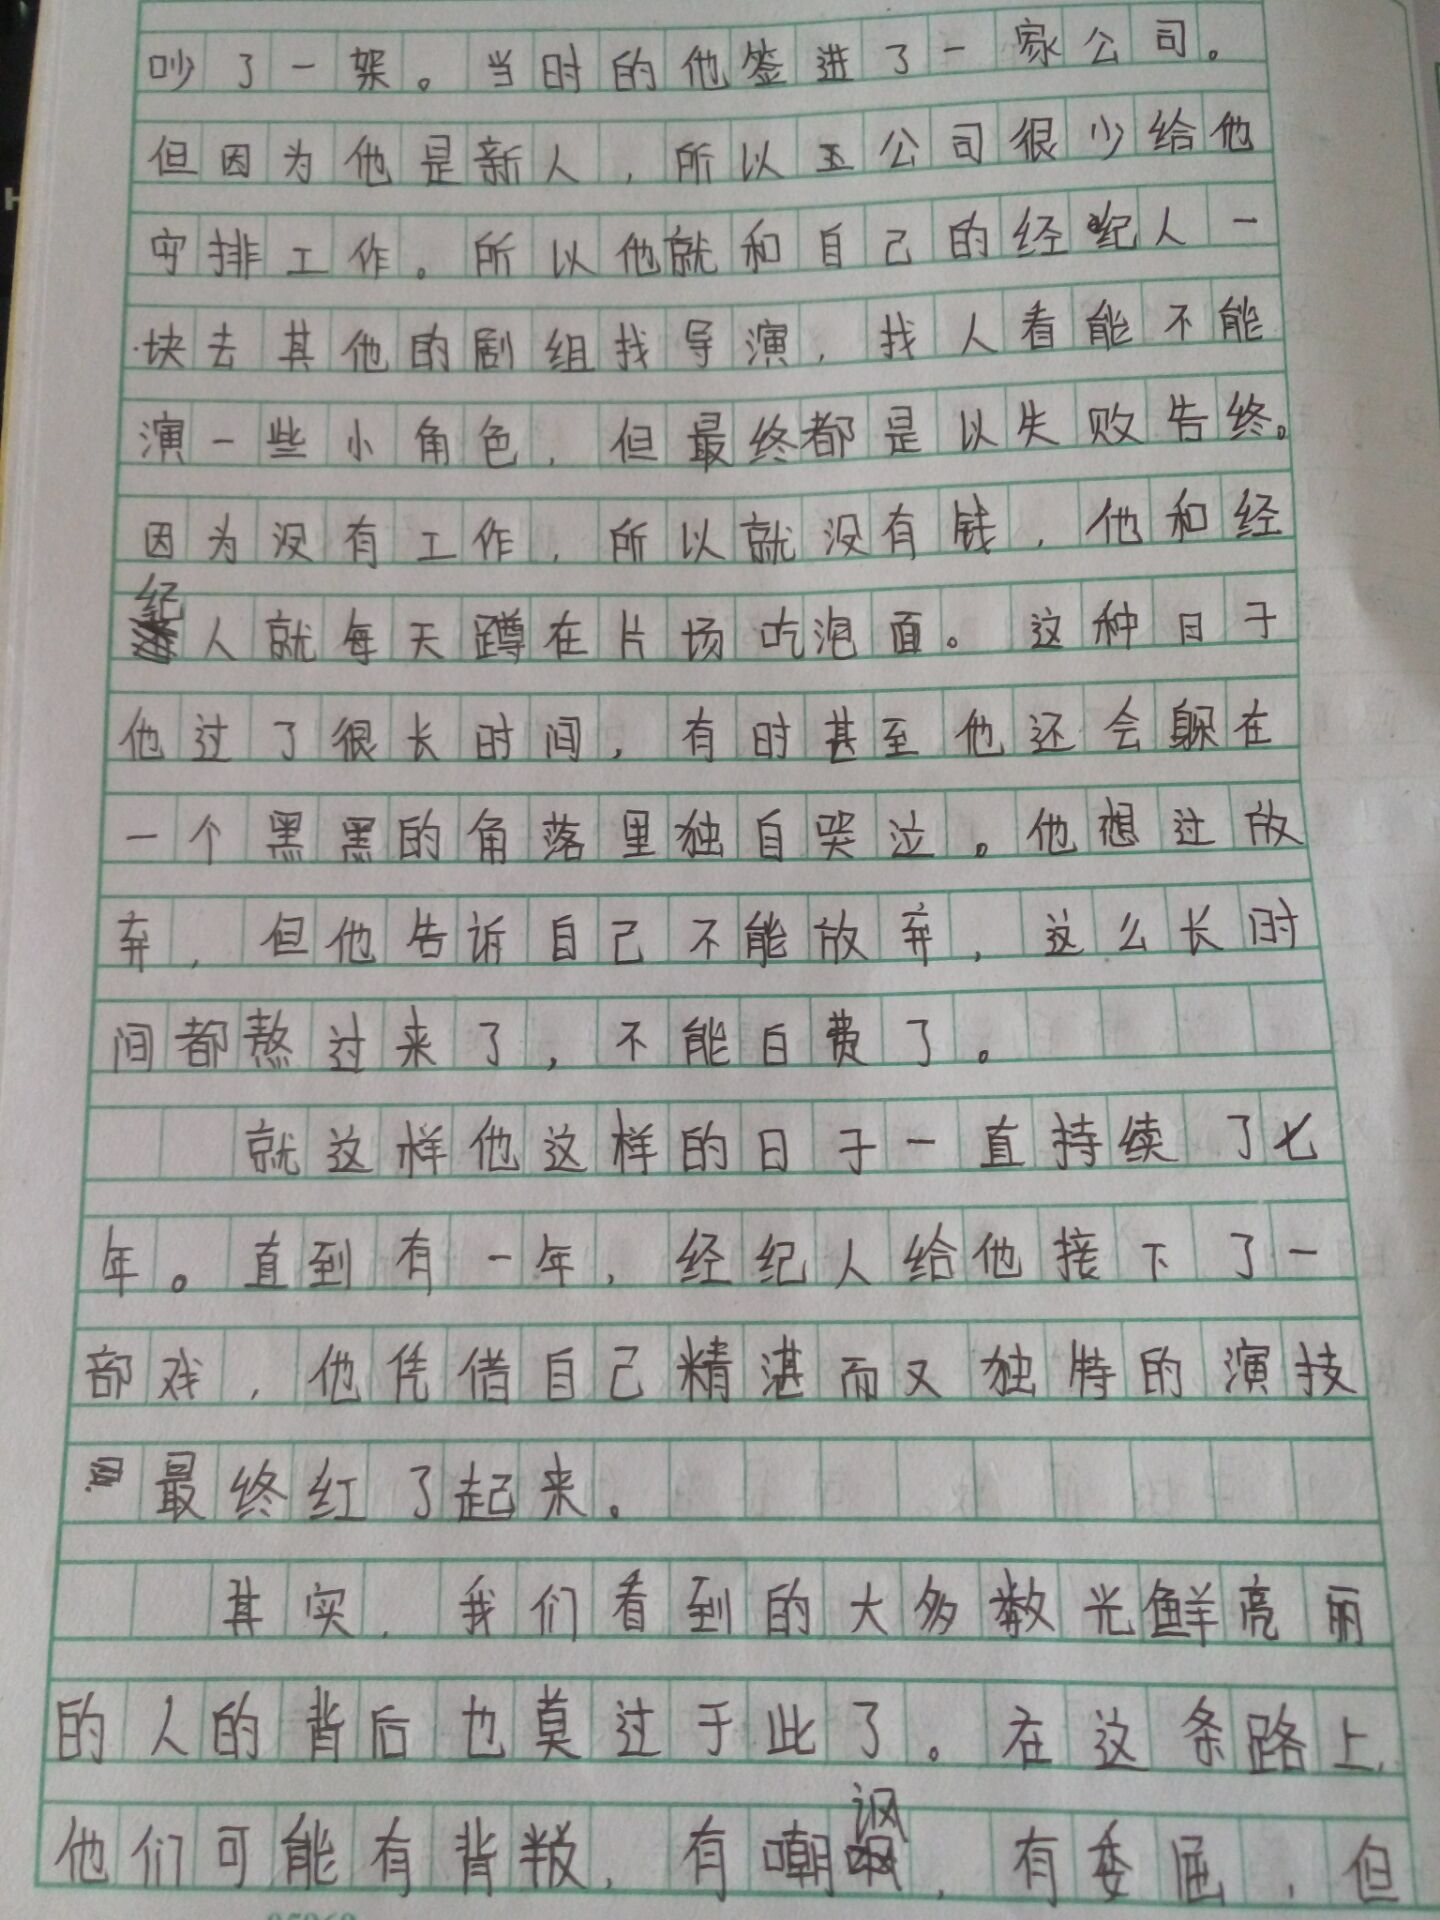 吵了一架。当时的他签进了一家公司。
但因为他是新人，所以公司很少给他
安排工作。所以他就和自己的经纪人一
块去其他的剧组找导演，找人看能不能
演一些小角色，但最终都是以失败告终。
因为没有工作，所以就没有钱，他和经
纪人就每天蹲在片场吃泡面。这种日子
他过了很长时间，有时甚至他还会躲在
一个黑黑的角落里独自哭泣。他想过放
弃，但他告诉自己不能放弃，这么长时
间都熬过来了，不能白费了。
就这样他这样的日子一直持续了七
年。直到有一年，经纪人给他接下了一
部戏，他凭借自己精湛而又独特的演技
最终红了起来。
其实，我们看到的大多数光鲜亮丽
的人的背后也莫过于此了。在这条路上，
他们可能有背叛，有嘲讽，有委屈，但